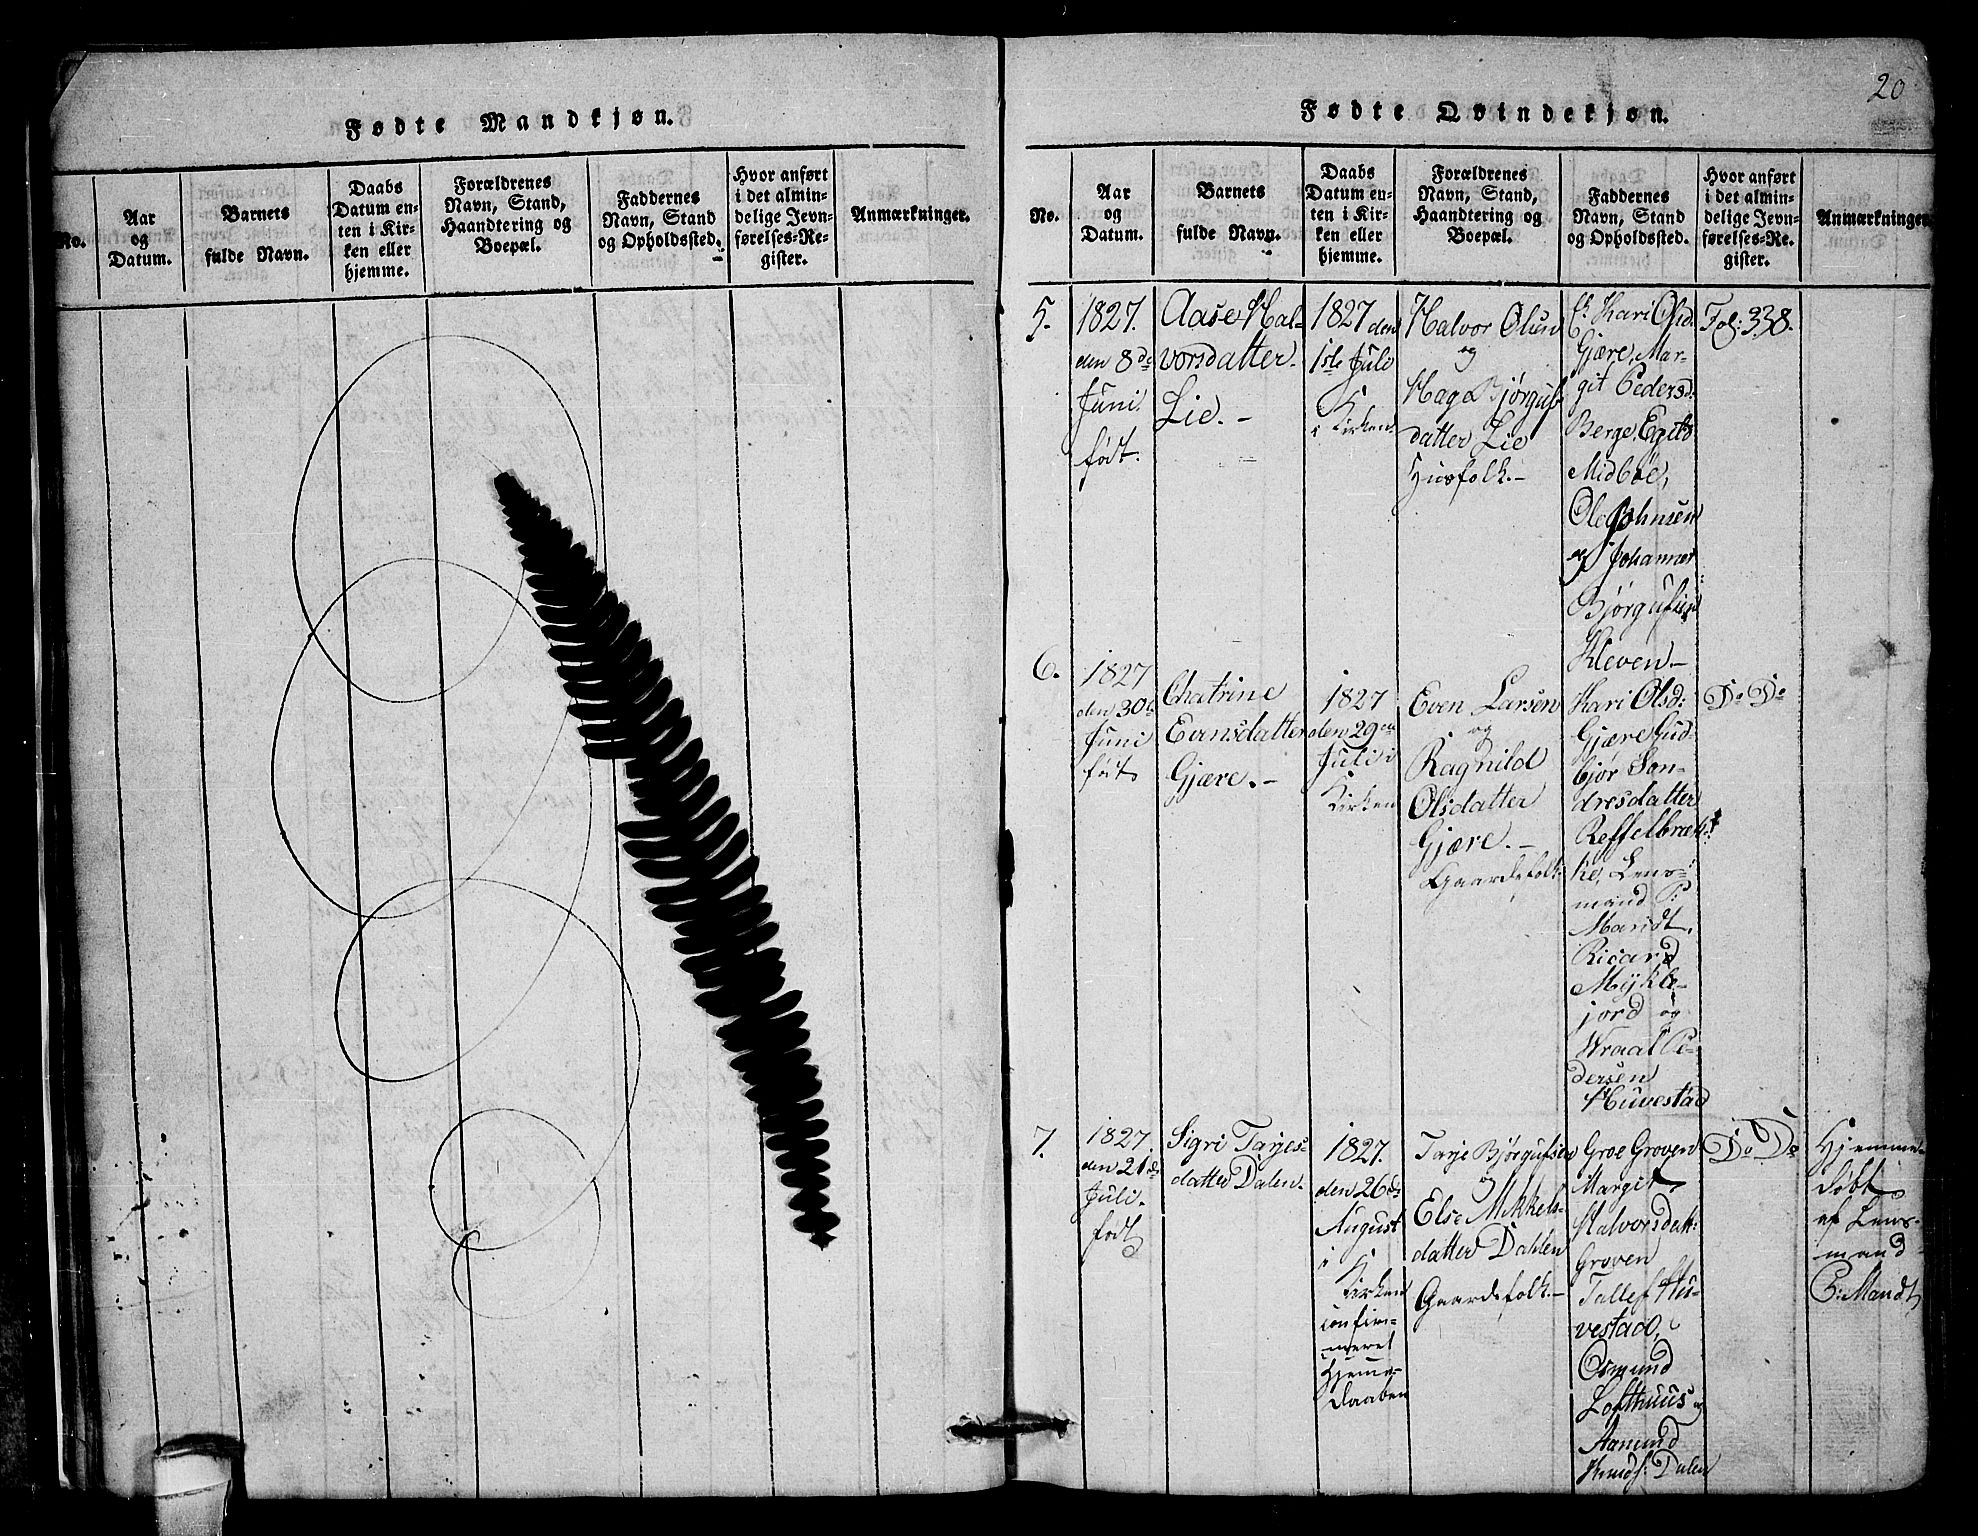 Fødte Mandkjøn.
No.
Aar
og
Datum.
Barnets
fulde Navn.
Daabs
Datum en-
ten i Kir-
ken eller
hjemme.
Forældrenes
Navn, Stand,
Haandtering og
Boepæl.
Faddernes
Navn, Stand
og Opholdssted.
Hvor anført
i det almin-
delige Jevn-
førelses-Re-
gister.
Anmærkninger.
20
Fødte Qvindekjøn.
No.
Aar
og
Datum.
Barnets
fulde Navn.
Daabs
Datum en-
ten i Kir-
ken eller
hjemme.
Forældrenes
Navn, Stand,
Haandtering og
Boepæl.
Faddernes
Navn, Stand
og Opholdssted.
Hvor anført
i det almin-
delige Jevn-
førelses-Re-
gister.
Anmærkninger.
5.
1827.
den 8de
Juni
født.
Aase Hal-
vorsdatter
Lie. –
1827 den
1ste Juli
i Kirken
Halvor Olsen
og
Hæge Bjørgufs
datter Lie
Huusfolk. –
Kari Olsd.
Gjære, Mar-
git Pedersd.
Berge,
Midböe,
Ole Johnsen
og Johannes
Bjørgufsen
Kleven –
Fol: 338.
6.
1827
den 30te
Juni
født
Chatrine
Evensdatter
Gjære. –
1827
den 29de
Juli i
Kirken
Even Larsen
og
Ragnild
Olsdatter
Gjære. –
Gaardefolk.
Kari Olsd:
Gjære Gud-
bjør Son-
dresdatter
Reffelbræk-
ke, Lens-
mand P:
Mandt,
Ricard
Mykle-
jord og
Wraal Pe-
dersen
Huvestad
Do Do
7.
1827.
den 21de
Juli.
født
Sigri Tarjes-
datter Dalen.
1827.
den 26de
August
i
Kirken
confir-
meret
Hjemme-
daaben
Tarje Bjørgufsen
og
Else Mikkels-
datter Dahlen
Gaardefolk. –
Groe Groven
Margit
Halvorsdatt:
Groven
Tallef Hu-
vestad,
Osmund
Lofthuus og
Aamund
Knuds: Dalen
Do Do
Hjemme-
døbt
af Lens-
mand
P: Mandt